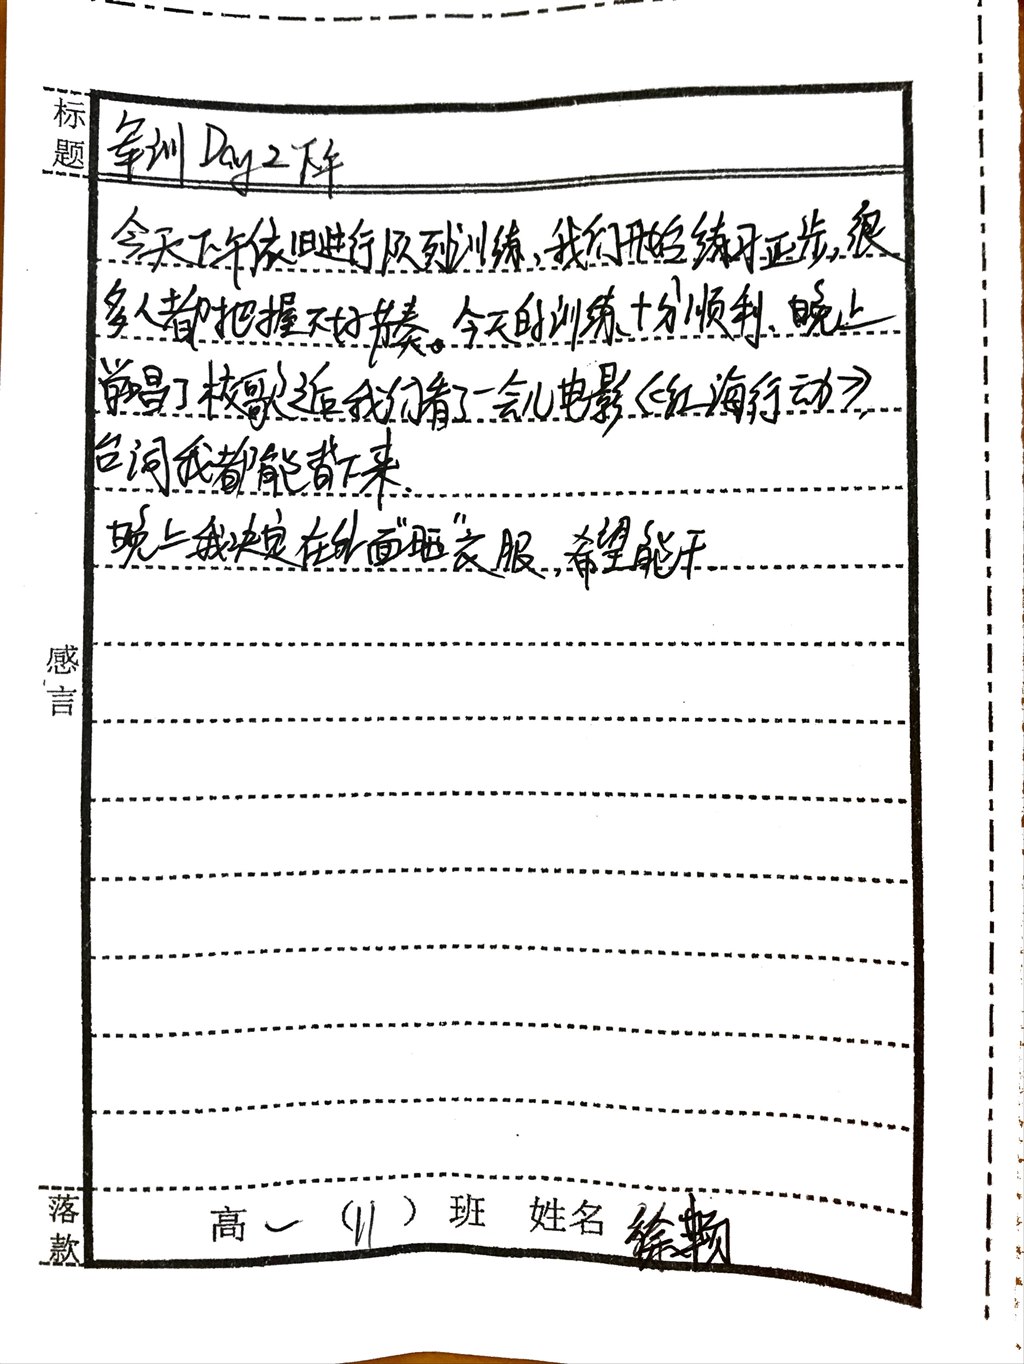 标题
军训 Day 2 下午
今天下午依旧进行队列训练,我们开始练习正步,很
多人都把握不好节奏。今天的训练十分顺利、晚上
前唱了校歌之后我们看了一会儿电影《红海行动》,
台词我都能背下来.
晚上我决定在外面“晒”衣服,希望能干.
感言
落款 高一 (11) 班 姓名 徐